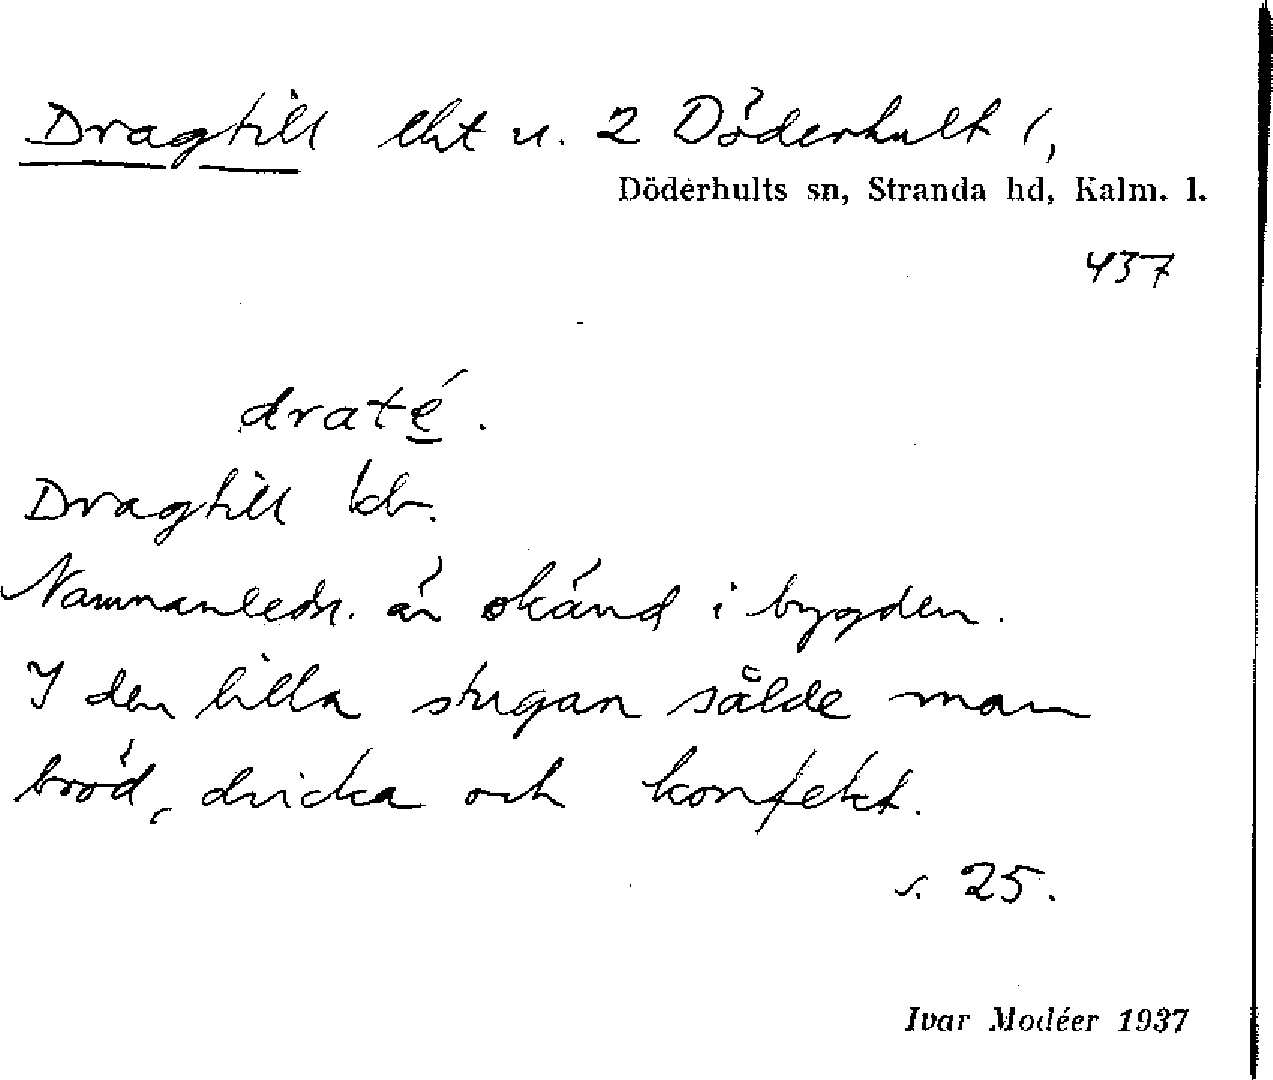 Dragtill lht u. 2 Döderhult 1,
Döderhults sn, Stranda hd, Kalm. l.
437
draté.
Dragtill kb.
Namnanledn. är okänd i bygden.
I den lilla stugan sålde man
bröd, dricka och konfekt.
s. 25.
Ivar Modéer 1937